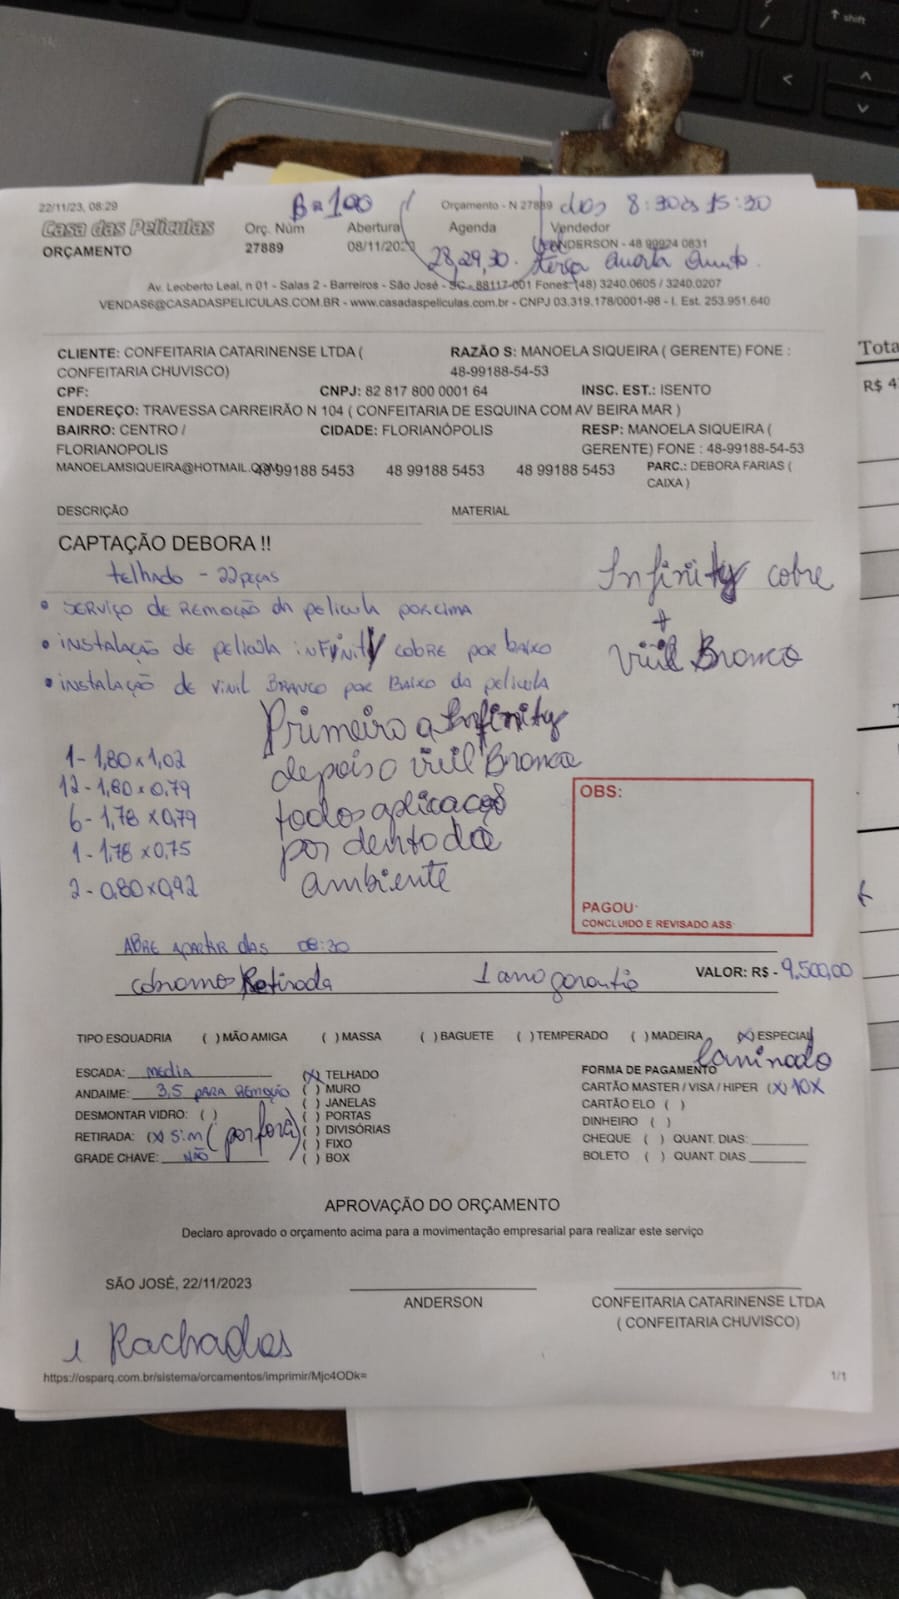 22/11/23, 08:29
B=100
Orçamento - N 27889
das 8:30às 15:30
Casa das Películas
Orç. Núm
Abertura
Agenda
Vendedor
ORÇAMENTO
27889
08/11/2023
ANDERSON - 48 99924 0831
28,29,30. terça quarta quinta.
Av. Leoberto Leal, n 01 - Salas 2 - Barreiros - São José - SC - 88117-001 Fones: (48) 3240.0605 / 3240.0207
VENDAS6@CASADASPELICULAS.COM.BR - www.casadaspeliculas.com.br - CNPJ 03.319.178/0001-98 - I. Est. 253.951.640
CLIENTE: CONFEITARIA CATARINENSE LTDA (
CONFEITARIA CHUVISCO)
RAZÃO S: MANOELA SIQUEIRA ( GERENTE) FONE :
48-99188-54-53
CPF:
CNPJ: 82 817 800 0001 64
INSC. EST.: ISENTO
ENDEREÇO: TRAVESSA CARREIRÃO N 104 ( CONFEITARIA DE ESQUINA COM AV BEIRA MAR )
BAIRRO: CENTRO /
FLORIANOPOLIS
CIDADE: FLORIANÓPOLIS
RESP: MANOELA SIQUEIRA (
GERENTE) FONE : 48-99188-54-53
MANOELAMSIQUEIRA@HOTMAIL.COM
48 99188 5453
48 99188 5453
48 99188 5453
PARC.: DEBORA FARIAS (
CAIXA )
DESCRIÇÃO
MATERIAL
CAPTAÇÃO DEBORA !!
telhado - 22 peças
Infinity cobre
+
Viiil Branco
• SERVIÇO DE REMOÇÃO DA PELICULA POR CIMA
• INSTALAÇÃO DE PELICULA INFINITY COBRE POR BAIXO
• INSTALAÇÃO DE VINIL BRANCO POR BAIXO DA PELICULA
Primeiro a Infinity
depois o viiil Branco
todos aplicaçaõ
por dento da
ambiente
1 - 1,80 x 1,02
12 - 1,80 x 0,79
6 - 1,78 x 0,79
1 - 1,78 x 0,75
2 - 0,80 x 0,92
OBS:
PAGOU:
CONCLUIDO E REVISADO ASS:
ABRE APARTIR DAS 08:30
cobramos Retirada
1 ano garantia
VALOR: R$ - 9.500,00
TIPO ESQUADRIA ( ) MÃO AMIGA ( ) MASSA ( ) BAGUETE ( ) TEMPERADO ( ) MADEIRA (X) ESPECIAL
Laminado
ESCADA: MEDIA
ANDAIME: 3,5 PARA REMOÇÃO
DESMONTAR VIDRO: ( )
RETIRADA: (X) Sim (por fora)
GRADE CHAVE: NÃO
(X) TELHADO
( ) MURO
( ) JANELAS
( ) PORTAS
( ) DIVISÓRIAS
( ) FIXO
( ) BOX
FORMA DE PAGAMENTO
CARTÃO MASTER / VISA / HIPER (X) 10X
CARTÃO ELO ( )
DINHEIRO ( )
CHEQUE ( ) QUANT. DIAS:
BOLETO ( ) QUANT. DIAS
APROVAÇÃO DO ORÇAMENTO
Declaro aprovado o orçamento acima para a movimentação empresarial para realizar este serviço
SÃO JOSÉ, 22/11/2023
ANDERSON
CONFEITARIA CATARINENSE LTDA
( CONFEITARIA CHUVISCO)
1 Rachados
https://osparq.com.br/sistema/orcamentos/imprimir/Mjc4ODk=
1/1
Tota
R$ 4
shift